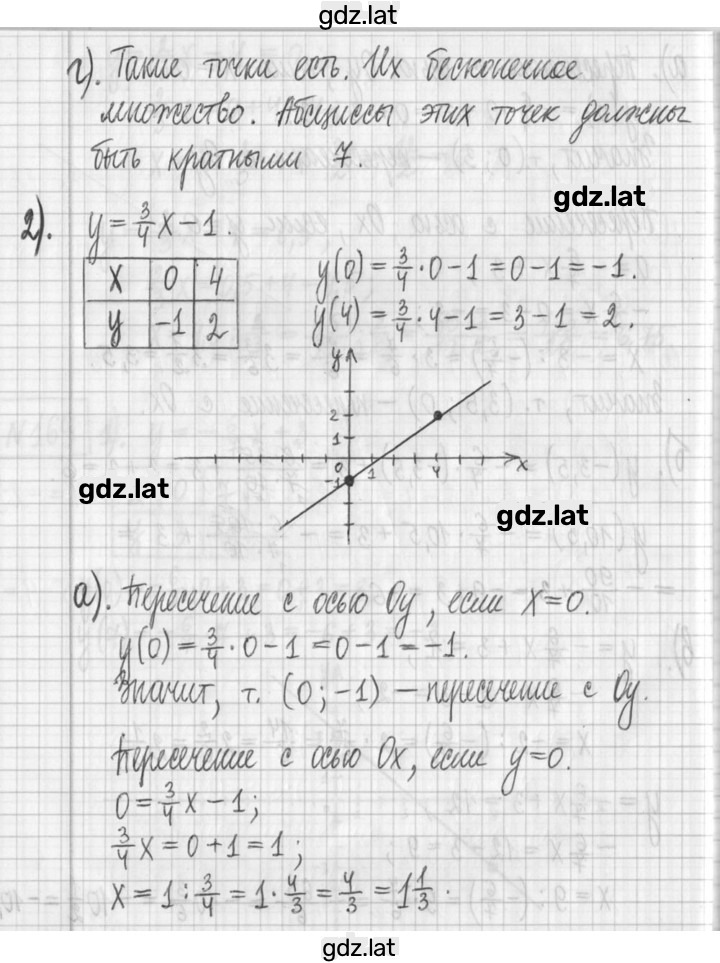 gdz.lat
г). Такие точки есть. Их бесконечное
множество. Абсциссы этих точек должны
быть кратными 7.
gdz.lat
2). y = 3/4 x − 1.
x 0 4
y −1 2
y(0) = 3/4 · 0 − 1 = 0 − 1 = −1.
y(4) = 3/4 · 4 − 1 = 3 − 1 = 2.
y
2
1
0
−1
1
4
x
gdz.lat
gdz.lat
а). Пересечение с осью Oy, если x = 0.
y(0) = 3/4 · 0 − 1 = 0 − 1 = −1.
Значит, т. (0; −1) — пересечение с Oy.
Пересечение с осью Ox, если y = 0.
0 = 3/4 x − 1;
3/4 x = 0 + 1 = 1;
x = 1 : 3/4 = 1 · 4/3 = 4/3 = 1 1/3.
gdz.lat